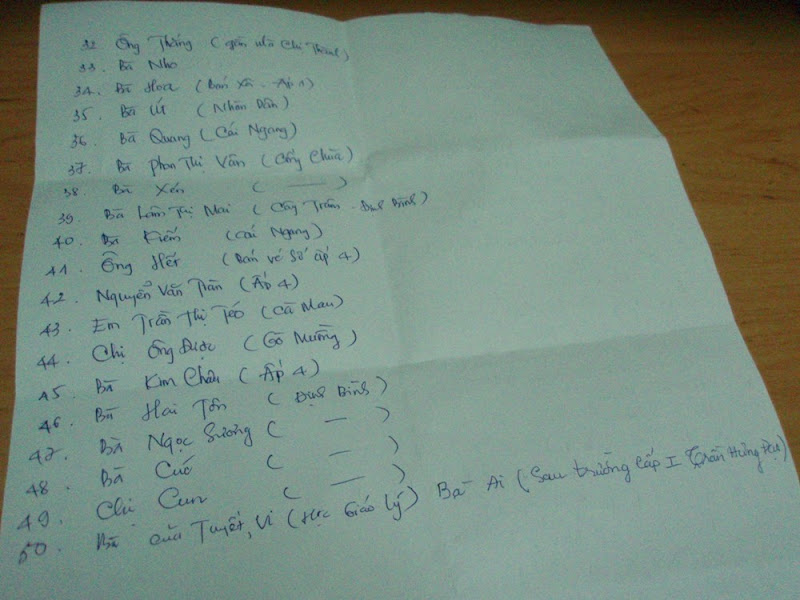 32. Ông Thắng (gần nhà Chị Thành)
33. Bà Nho
34. Bà Hoa (Bán Xôi - Ấp 1)
35. Bà Út (Nhân Dân)
36. Bà Quang (Cái Ngang)
37. Bà Phan Thị Vân (Cổng Chùa)
38. Bà Xến ( — )
39. Bà Lâm Thị Mai (Cây Trâm - Định Bình)
40. Bà Kiếm (Cái Ngang)
41. Ông Hết (Bán vé Số ấp 4)
42. Nguyễn Văn Trân (Ấp 4)
43. Em Trần Thị Téo (Cà Mau)
44. Chị Ông Được (Gò Muồng)
45. Bà Kim Châu (Ấp 4)
46. Bà Hai Tôn (Định Bình)
47. Bà Ngọc Sương ( — )
48. Bà Cúc ( — )
49. Chị Cun ( — )
50. Bà của Tuyết, Vi (Học Giáo lý) Bà Ai (Sau trường Cấp I Trần Hưng Đạo)